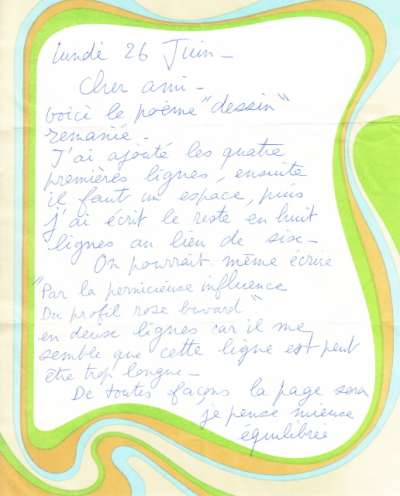 lundi 26 Juin_
Cher ami_
voici le poème "dessin"
remanié_
J'ai ajouté les quatre
premières lignes, ensuite
il faut un espace, puis
j'ai écrit le reste en huit
lignes au lieu de six_
On pourrait même écrire
"Par la pernicieuse influence
Du profil rose buvard"
en deux lignes car il me
semble que cette ligne est peut
être trop longue_
De toutes façons la page sera
je pense mieux
équilibrée